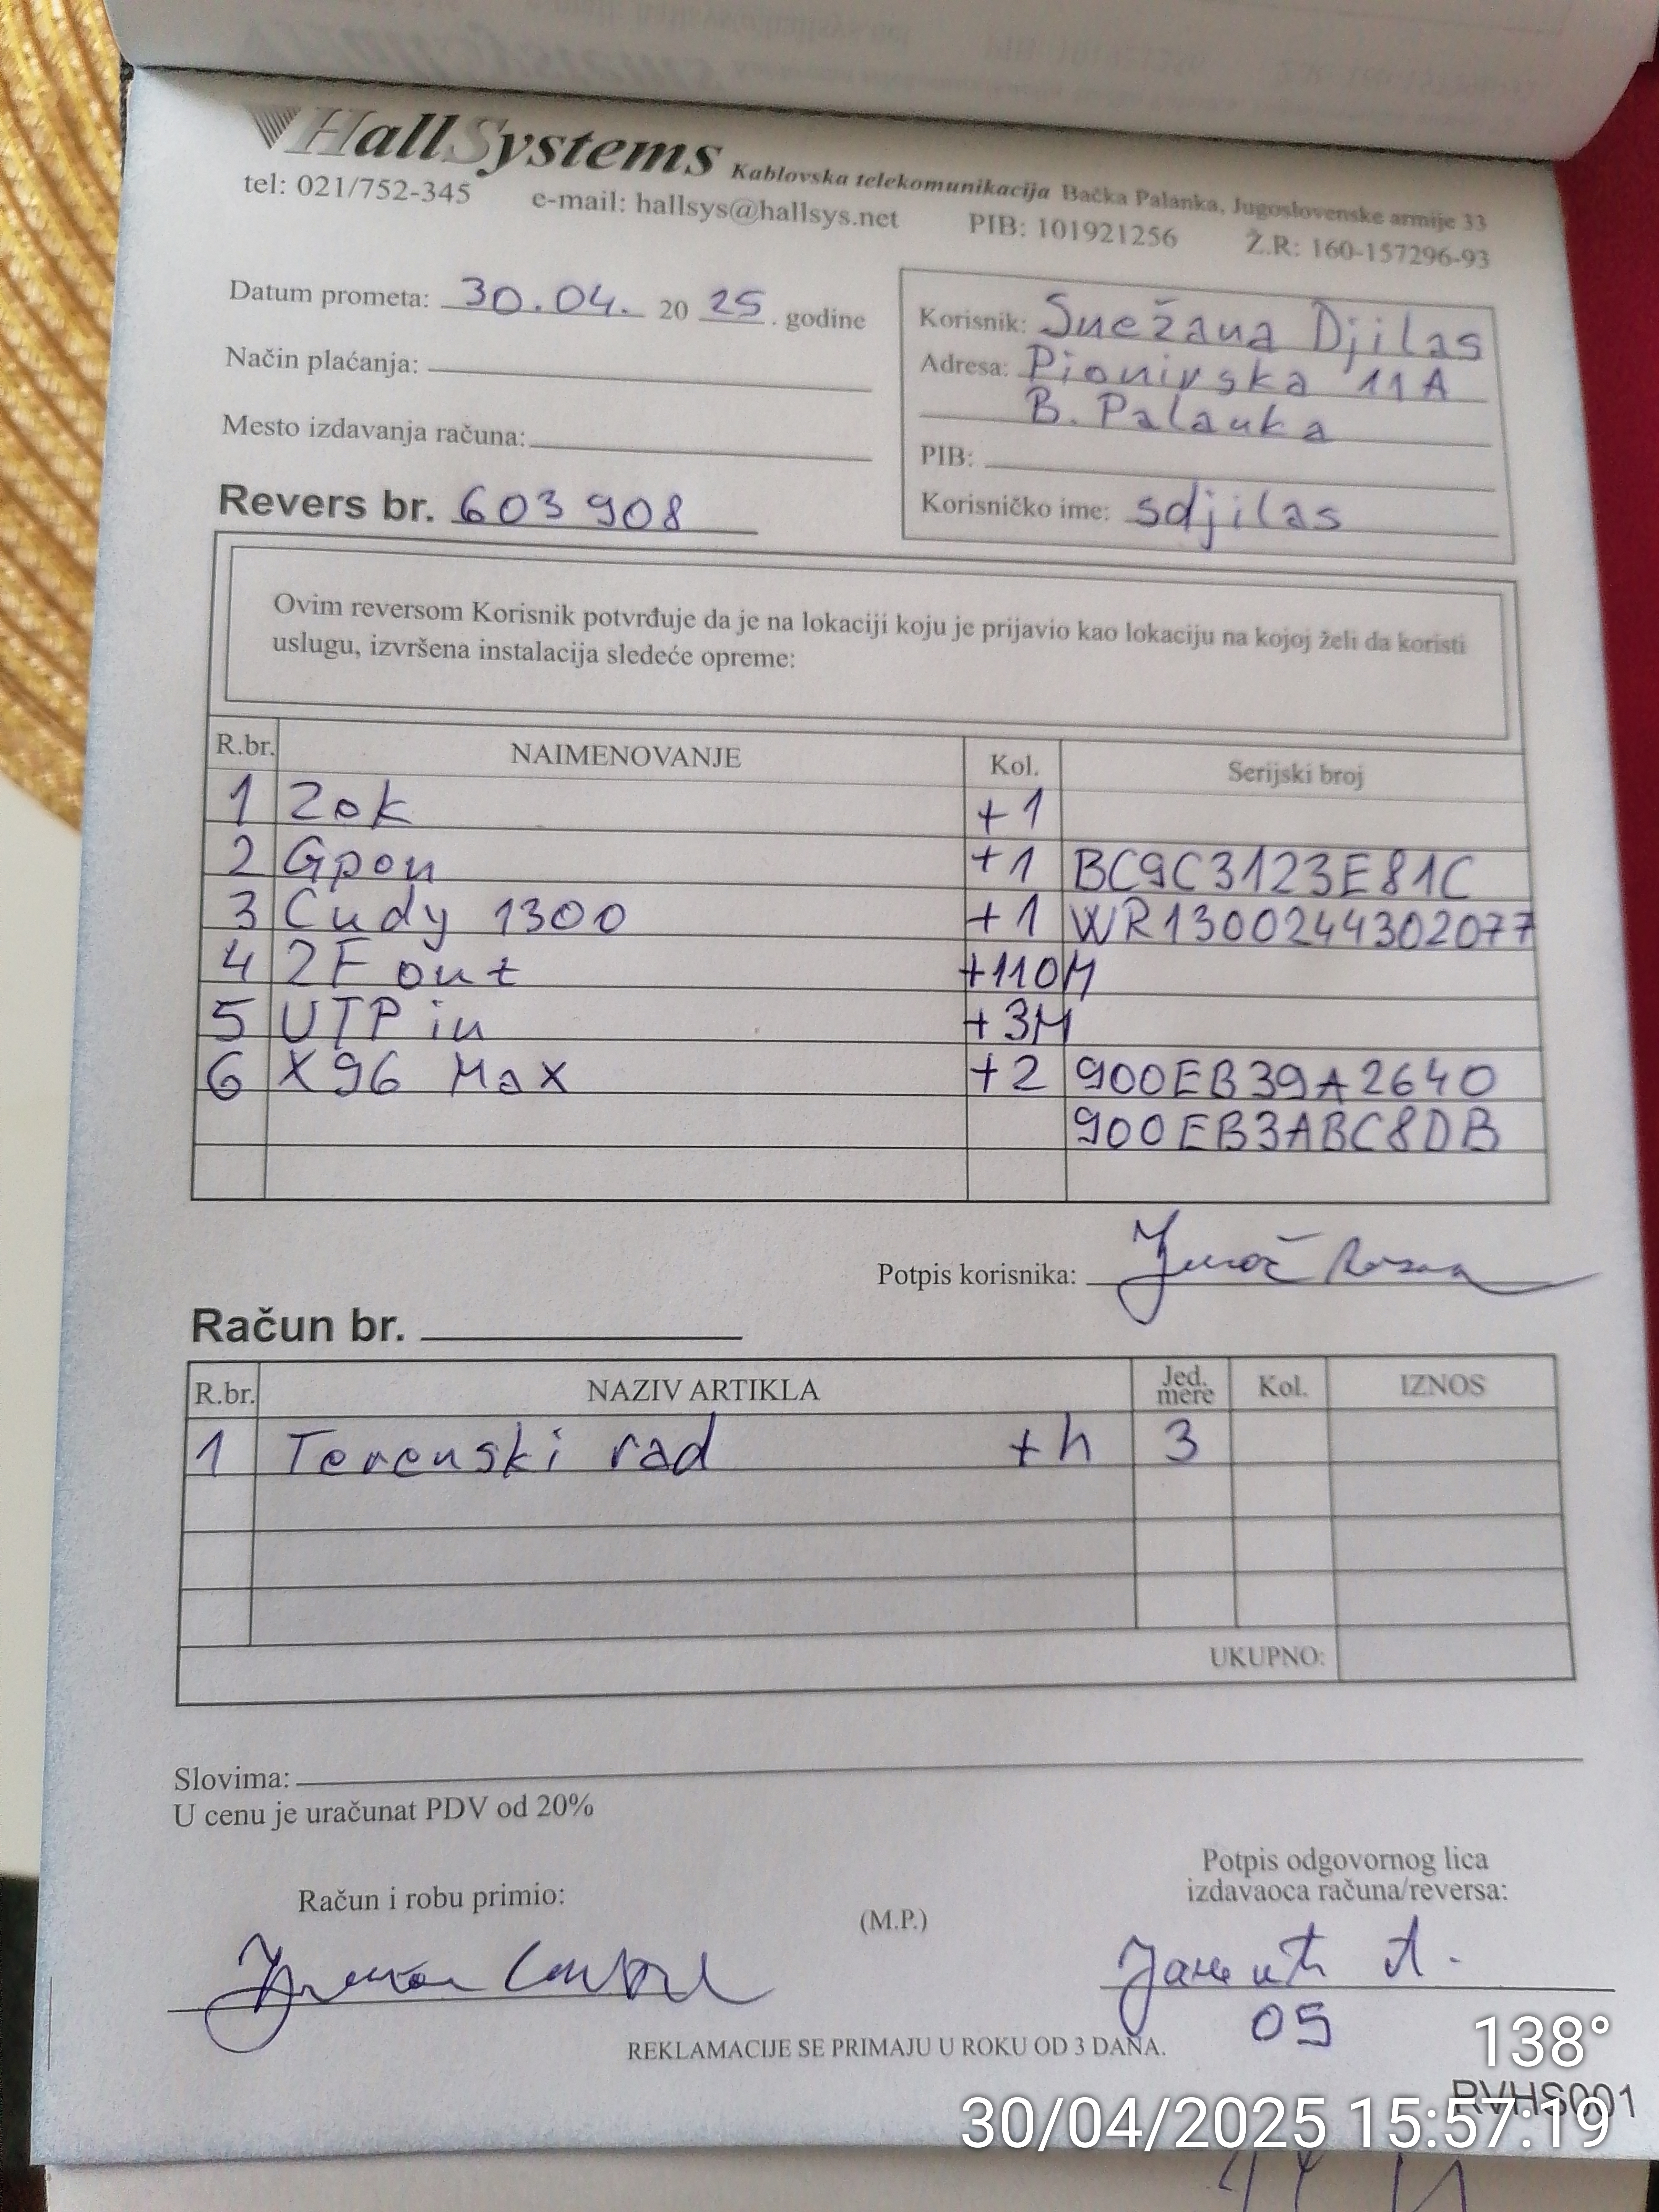 HallSystems Kablovska telekomunikacija Bačka Palanka, Jugoslovenske armije 33
tel: 021/752-345 e-mail: hallsys@hallsys.net PIB: 101921256 Ž.R: 160-157296-93
Datum prometa: 30.04. 20 25. godine
Način plaćanja:
Mesto izdavanja računa:
Revers br. 603908
Korisnik: Snežana Djilas
Adresa: Pionirska 11A
B. Palanka
PIB:
Korisničko ime: sdjilas
Ovim reversom Korisnik potvrđuje da je na lokaciji koju je prijavio kao lokaciju na kojoj želi da koristi
uslugu, izvršena instalacija sledeće opreme:
R.br. NAIMENOVANJE Kol. Serijski broj
1 Zok +1
2 Gpon +1 BC9C3123E81C
3 Cudy 1300 +1 WR1300244302077
4 2F out +110M
5 UTP in +3M
6 X96 Max +2 900EB39A2640
900EB3ABC8DB
Potpis korisnika:
Račun br.
R.br. NAZIV ARTIKLA Jed. mere Kol. IZNOS
1 Terenski rad +h 3
UKUPNO:
Slovima:
U cenu je uračunat PDV od 20%
Potpis odgovornog lica
izdavaoca računa/reversa:
Račun i robu primio:
(M.P.)
05
REKLAMACIJE SE PRIMAJU U ROKU OD 3 DANA.
138°
RVHS001
30/04/2025 15:57:19